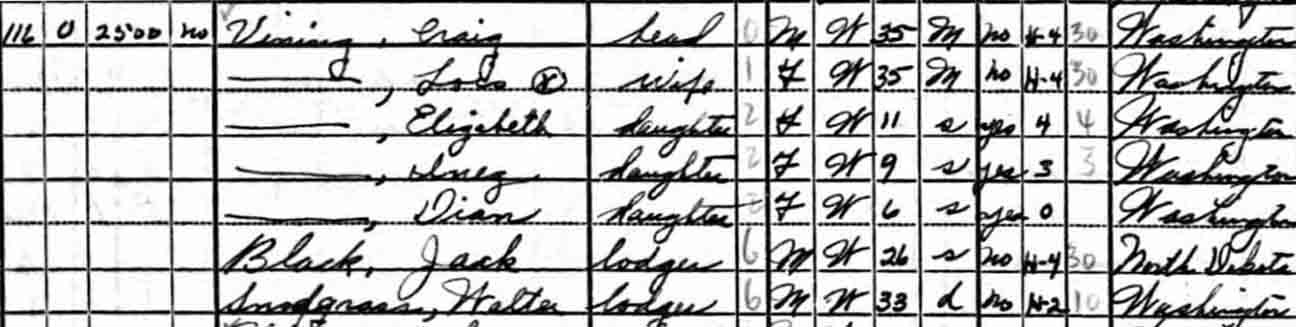 116 O 2500 no Vining, Craig head 0 M W 35 M no H-4 30 Washington
——, Lois ⓧ wife 1 F W 35 M no H-4 30 Washington
——, Elizabeth daughter 2 F W 11 s yes 4 4 Washington
——, Inez daughter 2 F W 9 s yes 3 3 Washington
——, Dian daughter 2 F W 6 s yes 0 Washington
Black, Jack lodger 6 M W 26 s no H-4 30 North Dakota
Snodgrass, Walter lodger 6 M W 33 d no H-2 10 Washington